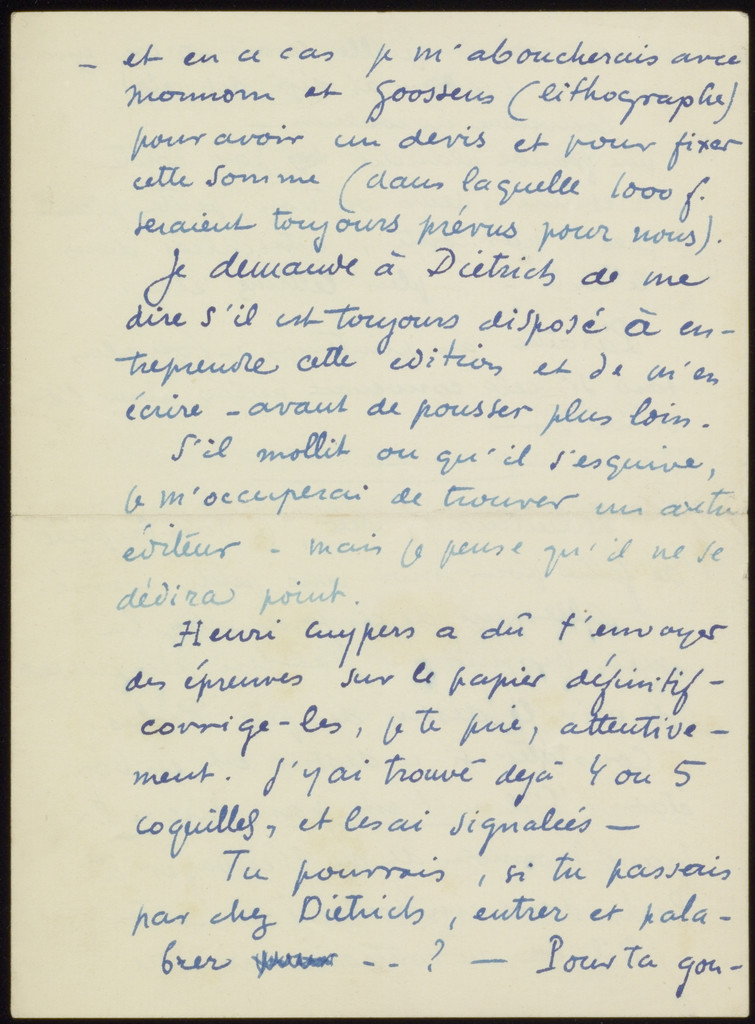 – et en ce cas je m'aboucherais avec
Monnom et Goossens (lithographe)
pour avoir un devis et pour fixer
cette somme (dans laquelle 1000 f.
seraient toujours prévus pour nous).
Je demande à Dietrich de me
dire s'il est toujours disposé à en-
treprendre cette edition et de m'en
écrire – avant de pousser plus loin.
S'il mollit ou qu'il s'esquive,
je m'occuperai de trouver un autre
éditeur – mais je pense qu'il ne se
dédira point.
Henri Cuypers a dû t'envoyer
des épreuves sur le papier définitif –
corrige-les, je te prie, attentive-
ment. J'y ai trouvé dejà 4 ou 5
coquilles, et les ai signalées –
Tu pourrais, si tu passais
par chez Diétrich, entrer et pala-
brer -- ? – Pour ta gou-